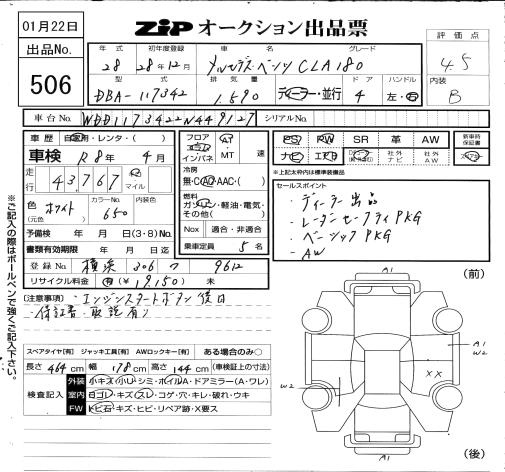 01月22日
ZIP オークション出品票
出品No.
506
評価点
4.5
内装
B
年式 初年度登録 車名 グレード
28 28年12月 メルセデス・ベンツ CLA180
型式 排気量 ドア ハンドル
DBA-117342 1,590 ディーラー・並行 4 左・右
車台No. WDD1173422N449127 シリアルNo.
車歴 自家用・レンタ・( )
車検 R8年 4月
走行 43,767 km マイル
色(元色) ホワイト カラーNo. 650 内装色
予備検 年 月 日(3・8)No.
書類有効期限 年 月 日迄
登録No. 横浜 306 フ 9612
リサイクル料金 有(¥19,150) 未
フロア コラム インパネ AT MT 速
冷房 無・CAC・AAC・( )
燃料 ガソリン・軽油・電気・その他( )
Nox 適合・非適合
乗車定員 5名
PS PW SR 革 AW
ナビ エアB 社外ナビ 社外AW
新車時保証書
*上記太枠内は標準装備品
セールスポイント
・ディーラー出品
・レーダーセーフティPKG
・ベーシックPKG
・AW
注意事項・エンジンスタートボタン後日
・保証書・取説有り
スペアタイヤ[有] ジャッキ工具[有] AWロックキー[有] ある場合のみ○
長さ 464cm 幅 178cm 高さ 144cm (車検証上の寸法)
検査記入
外装 小キズ・小U・シミ・ボイルA・ドアミラー(A・ワレ)
室内 ヨゴレ・キズ・スレ・コゲ・穴・キレ・破れ・ウキ
FW トビ石・キズ・ヒビ・リペア跡・X要ス
※ご記入の際はボールペンで強くご記入下さい。
(前)
A1
A1
W2
W2
XX
A1
(後)